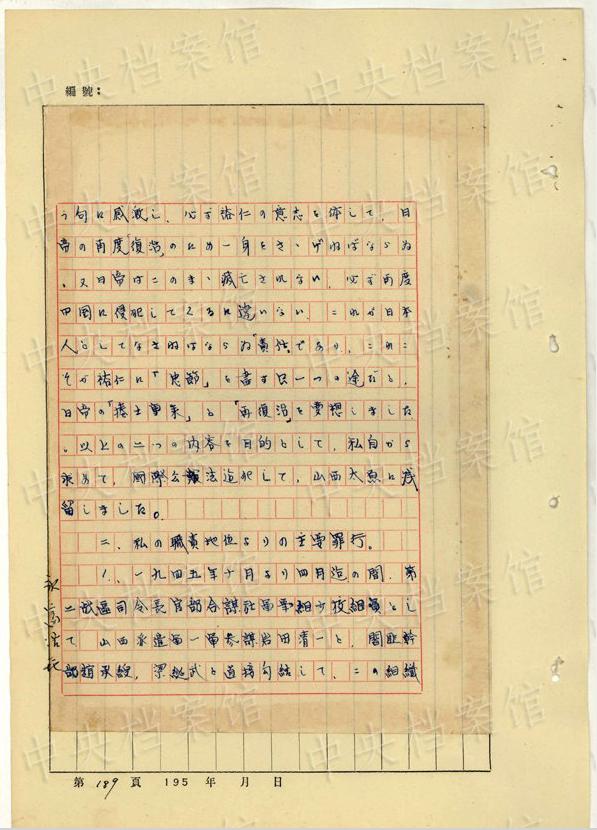 編號:
う句に感激し、必ず裕仁の意志を体して、日
帝の再度「復活」のため一身をさゝげねばならぬ
。又日帝はこのまゝ滅亡されない、必ず再度
中国に侵犯してくるに違いない、これが日本
人としてなさねばならぬ「責任」であり、これこ
そが裕仁に「忠節」を尽す只一つの途だと、
日帝の「捲土重来」と「再復活」を夢想しました
。以上の二つの内容を目的として、私自から
求めて、国際公法違犯して、山西太原に残
留しました。
二、私の職責地位よりの主要罪行。
1、一九四五年十月より四月迄の間、第
二戦区司令長官部合謀社軍事組少校組員とし
て 山西派遣第一軍参謀岩田清一と、閻匪幹
部趙承綬、梁綖武と直接勾結して、この組織
永富浩
第 189 頁 195 年 月 日
中央档案馆